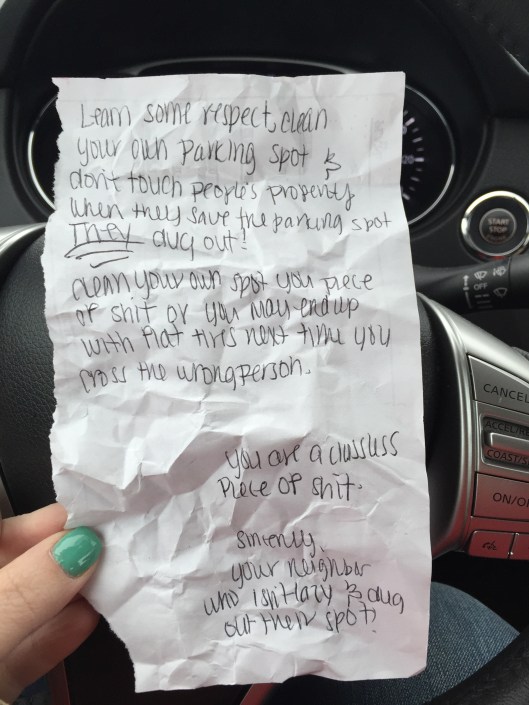 Learn some respect, clean
your own parking spot &
don't touch people's property
when they save the parking spot
They dug out!
clean your own spot you piece
of shit or you may end up
with flat tires next time you
cross the wrong person.
you are a classless
piece of shit.
Sincerely,
your neighbor
who isn't lazy & dug
out their spot!
START
STOP
OFF
CANCEL
COAST/S
ON/O